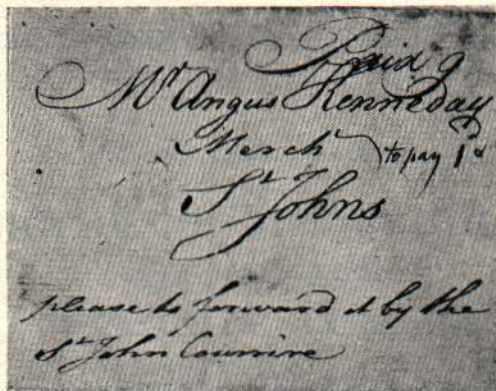 Paid 9
Mr Angus Kenneday
Merch to pay 1d
St Johns
please to forward it by the
St John Courrire